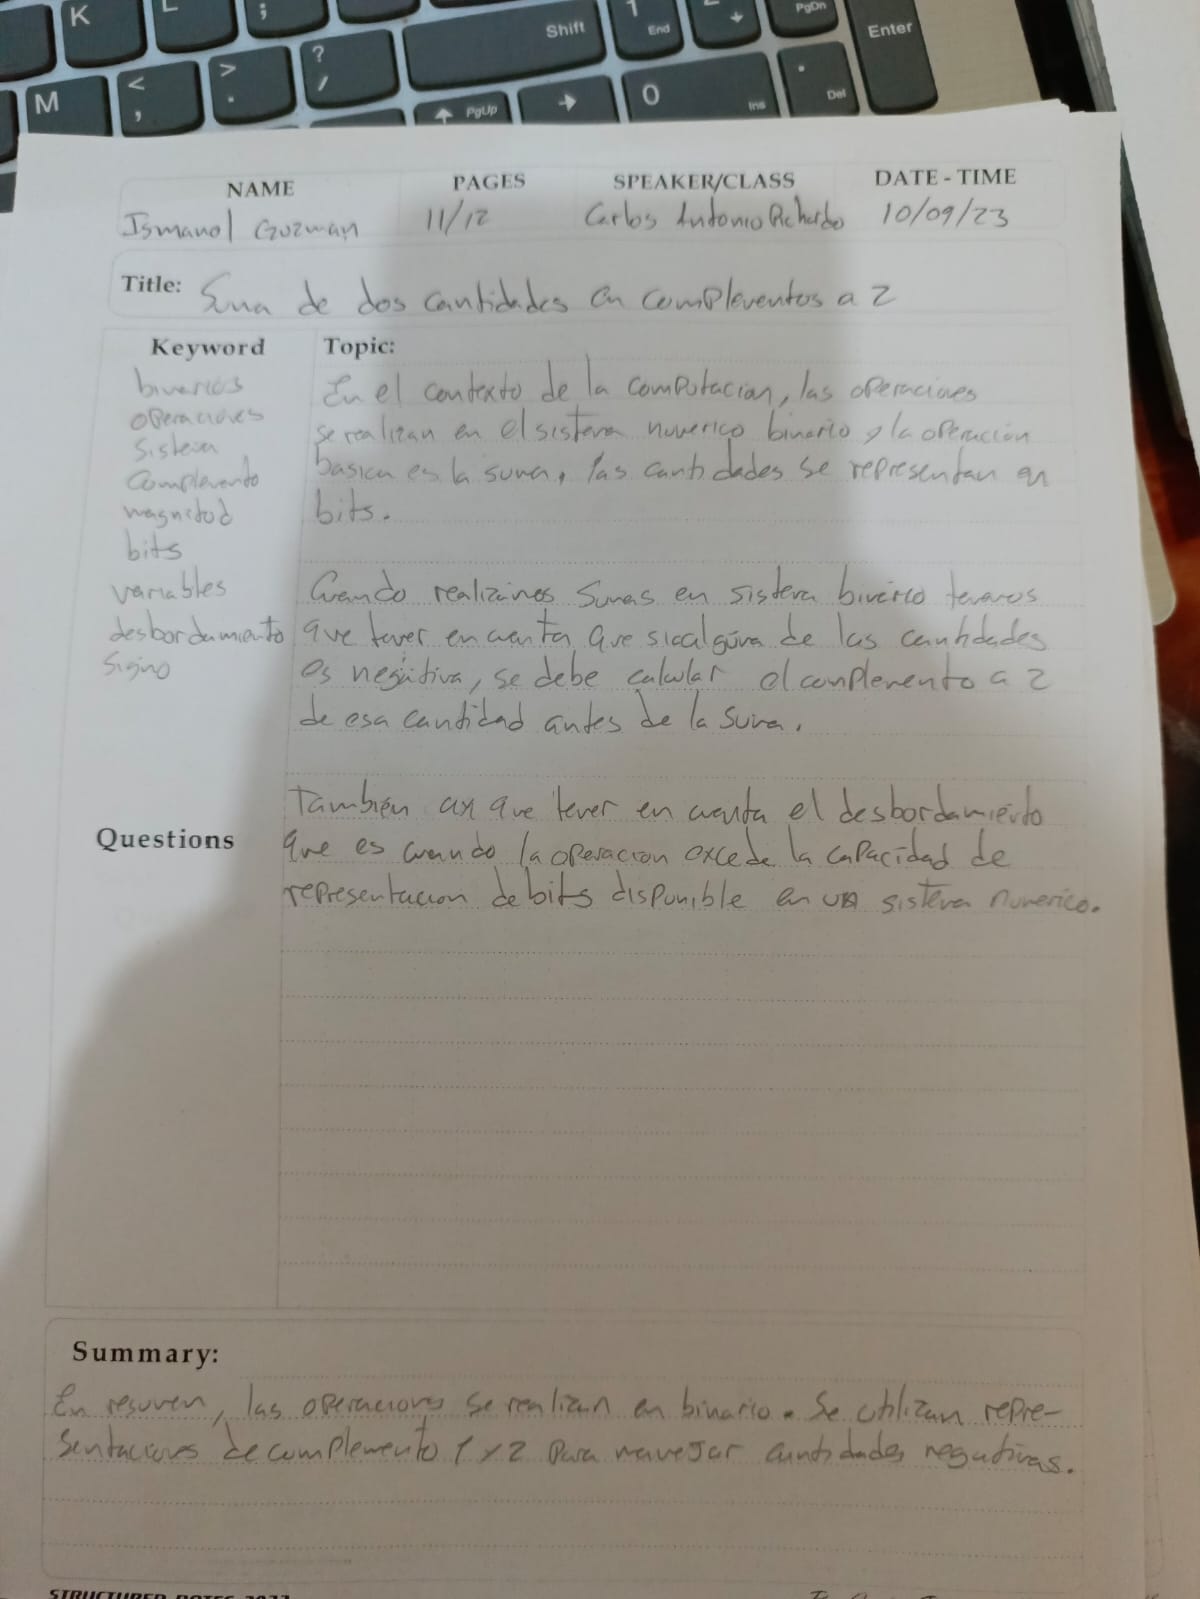 K
L
;
Shift
1
End
PgDn
Enter
M
<
,
>
.
?
/
PgUp
0
Ins
.
Del
NAME PAGES SPEAKER/CLASS DATE - TIME
Ismanol Guzman 11/12 Carlos Antonio Pichardo 10/09/23
Title: Suma de dos cantidades en complementos a 2
Keyword Topic:
binarios
operaciones
Sistema
Complemento
magnitud
bits
variables
desbordamiento
Signo
En el contexto de la computacion, las operaciones
se realizan en el sistema numerico binario y la operación
basica es la suma, las cantidades se representan en
bits.
Cuando realizanos sumas en sistema binario tenemos
que tener en cuenta que si alguna de las cantidades
es negativa, se debe calcular el complemento a 2
de esa cantidad antes de la suma.
También ay que tener en cuenta el desbordamiento
que es cuando la operacion excede la capacidad de
representacion de bits disponible en un sistema numerico.
Questions
Summary:
En resumen, las operaciones se realizan en binario. Se utilizan repre-
sentaciones de complemento 1 y 2 para manejar cantidades negativas.